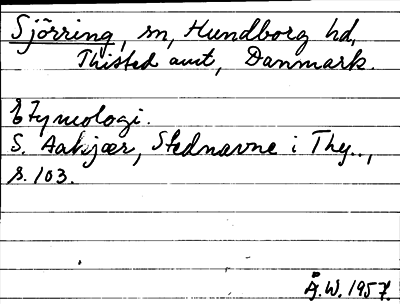 Sjörring, sn, Hundborg hd,
Thisted amt, Danmark.
Etymologi.
S. Aakjær, Stednavne i Thy..,
s. 103.
Å.W. 1957.